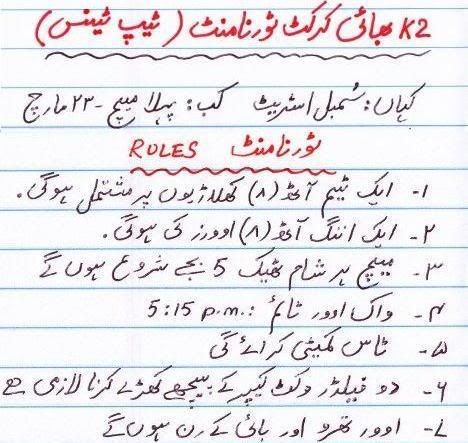 K2 بھائی کرکٹ ٹورنامنٹ (ٹیپ ٹینس)
کہاں: سُمبل اسٹریٹ کب: پہلا میچ - ۲۳ مارچ
ٹورنامنٹ RULES
۱- ایک ٹیم آٹھ (۸) کھلاڑیوں پر مشتمل ہوگی۔
۲- ایک اننگ آٹھ (۸) اوورز کی ہوگی۔
۳- میچ ہر شام ٹھیک 5 بجے شروع ہوں گے
۴- واک اوور ٹائم: 5:15 p.m.
۵- ٹاس کمیٹی کرائے گی
۶- دو فیلڈر وکٹ کیپر کے پیچھے کھڑے کرنا لازمی ہے
۷- اوور تھرو اور بائی کے رن ہوں گے